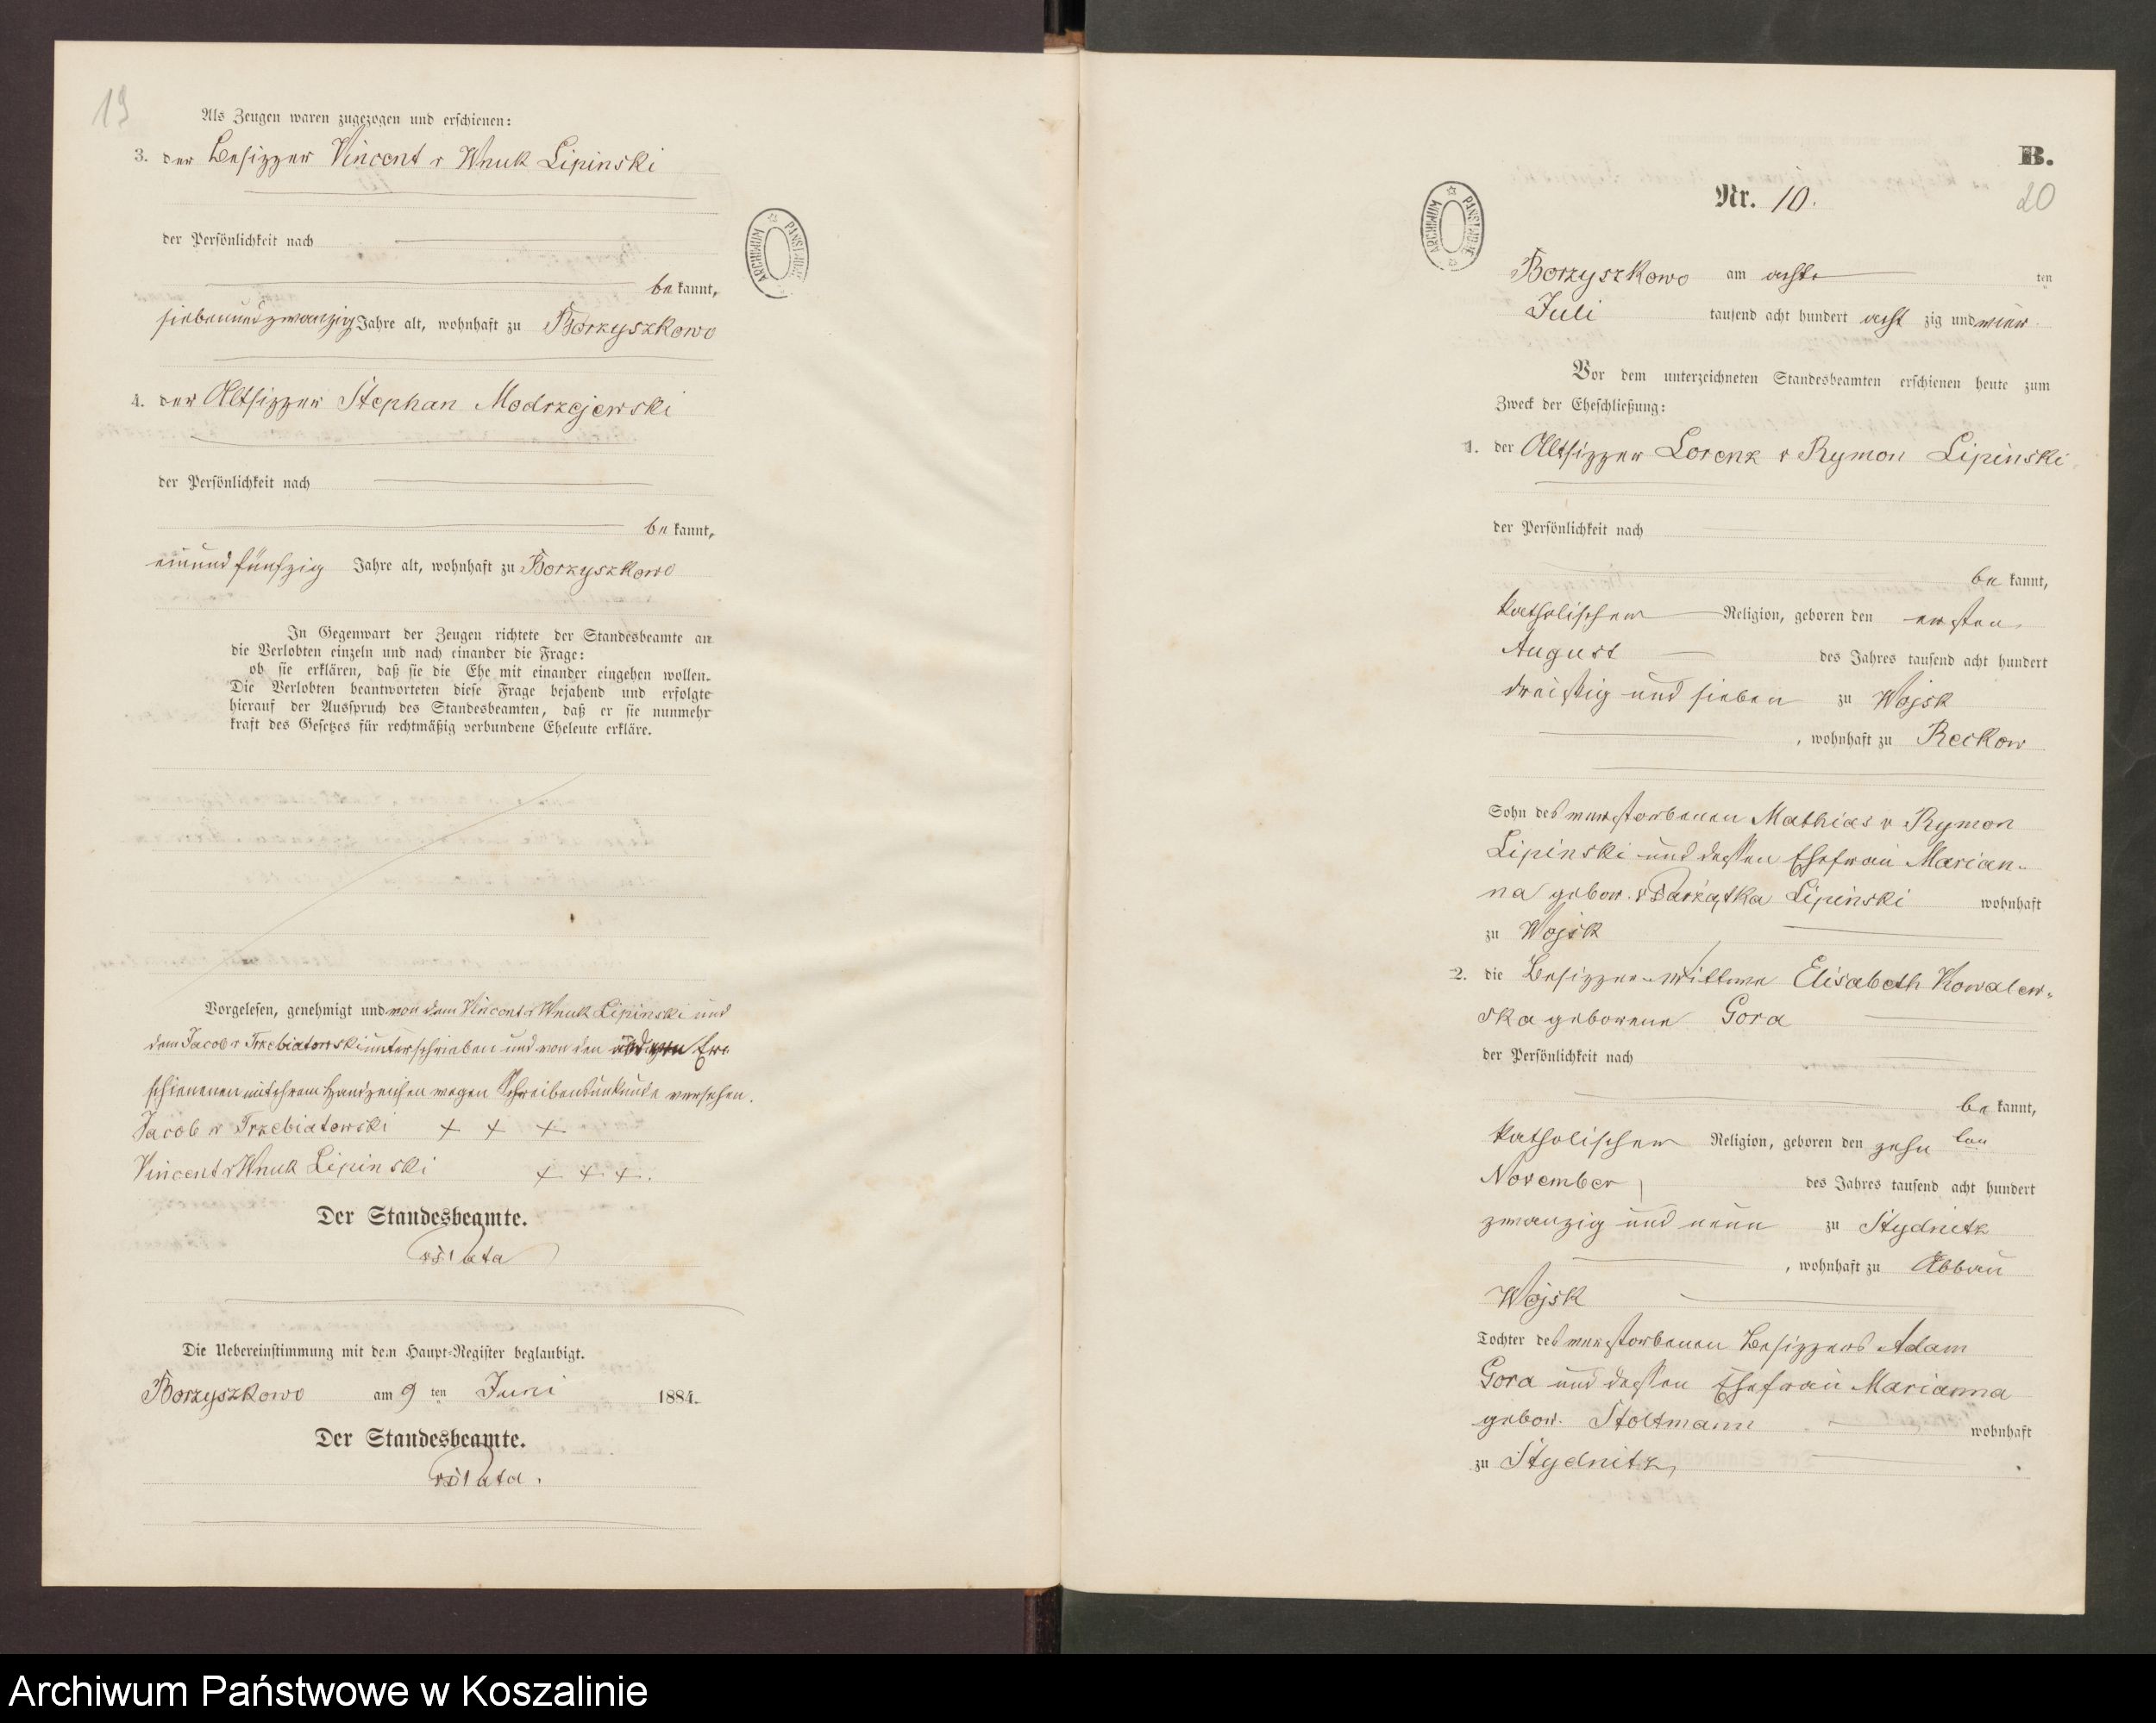 19
Als Zeugen waren zugezogen und erschienen:
3. der Besitzer Vincent v Wnuk Lipinski
der Persönlichkeit nach
be kannt,
siebenundzwanzig Jahre alt, wohnhaft zu Borzyszkowo
4. der Altsitzer Stephan Modrzejewski
der Persönlichkeit nach
be kannt,
einundfünfzig Jahre alt, wohnhaft zu Borzyszkowo
In Gegenwart der Zeugen richtete der Standesbeamte an
die Verlobten einzeln und nach einander die Frage:
ob sie erklären, daß sie die Ehe mit einander eingehen wollen.
Die Verlobten beantworteten diese Frage bejahend und erfolgte
hierauf der Ausspruch des Standesbeamten, daß er sie nunmehr
kraft des Gesetzes für rechtmäßig verbundene Eheleute erkläre.
Vorgelesen, genehmigt und von dem Vincent v Wnuk Lipinski und
dem Jacob v Trzebiatowski unterschrieben und von den Er-
schienenen mit ihrem Handzeichen wegen Schreibensunkunde versehen.
Jacob v Trzebiatowski + + +
Vincent v Wnuk Lipinski + + +.
Der Standesbeamte.
Die Uebereinstimmung mit dem Haupt-Register beglaubigt.
Borzyszkowo am 9 ten Juni 1884.
Der Standesbeamte.
ARCHIWUM PAŃSTWOWE
B.
20
Nr. 10.
ARCHIWUM PAŃSTWOWE
Borzyszkowo am achte ten
Juli tausend acht hundert acht zig und vier.
Vor dem unterzeichneten Standesbeamten erschienen heute zum
Zweck der Eheschließung:
1. der Altsitzer Lorenz v Rymon Lipinski
der Persönlichkeit nach
be kannt,
katholischer Religion, geboren den ersten
August des Jahres tausend acht hundert
dreißig und sieben zu Wojsk
, wohnhaft zu Reckow
Sohn des verstorbenen Mathias v Rymon
Lipinski und dessen Ehefrau Marian-
na gebor. v Lipinski wohnhaft
zu Wojsk
2. die Besitzer-Wittwe Elisabeth Kowalew-
ska geborene Gora
der Persönlichkeit nach
be kannt,
katholischer Religion, geboren den zehn ten
November des Jahres tausend acht hundert
zwanzig und neun zu Stydnitz
, wohnhaft zu Abbau
Wojsk
Tochter des verstorbenen Besitzers Adam
Gora und dessen Ehefrau Marianna
gebor. Stoltmann wohnhaft
zu Stydnitz
Archiwum Państwowe w Koszalinie